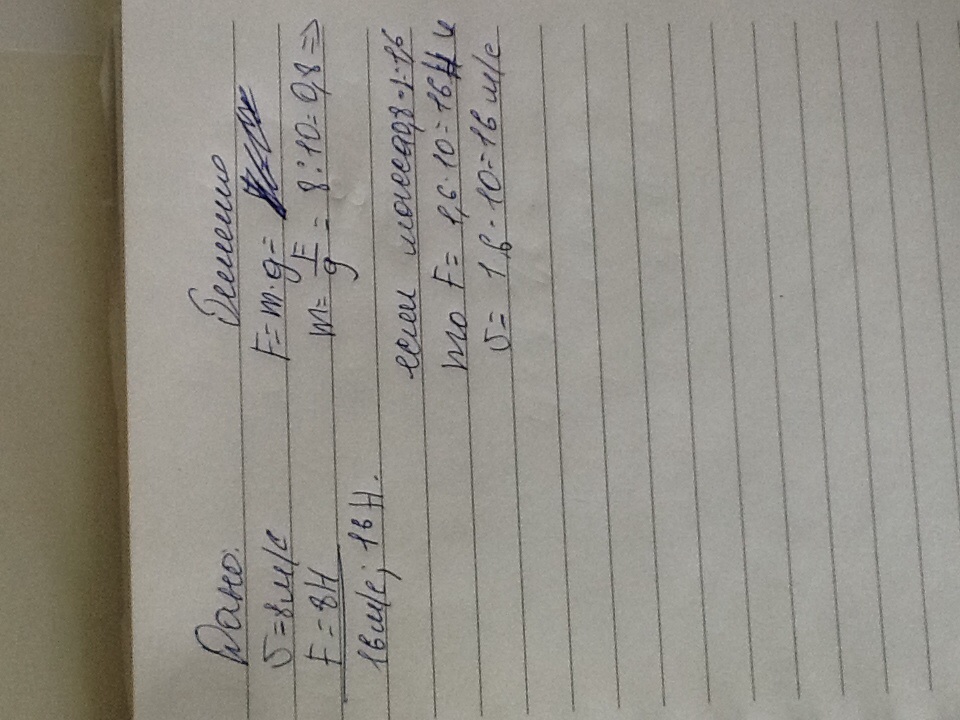 Дано:
υ=8м/с
F=8Н
16м/с; 16Н.
Решение
F=m·g=
m=F/g=8:10=0,8=>
если масса
то F=1,6·10=16Н и
υ=1,6·10=16м/с